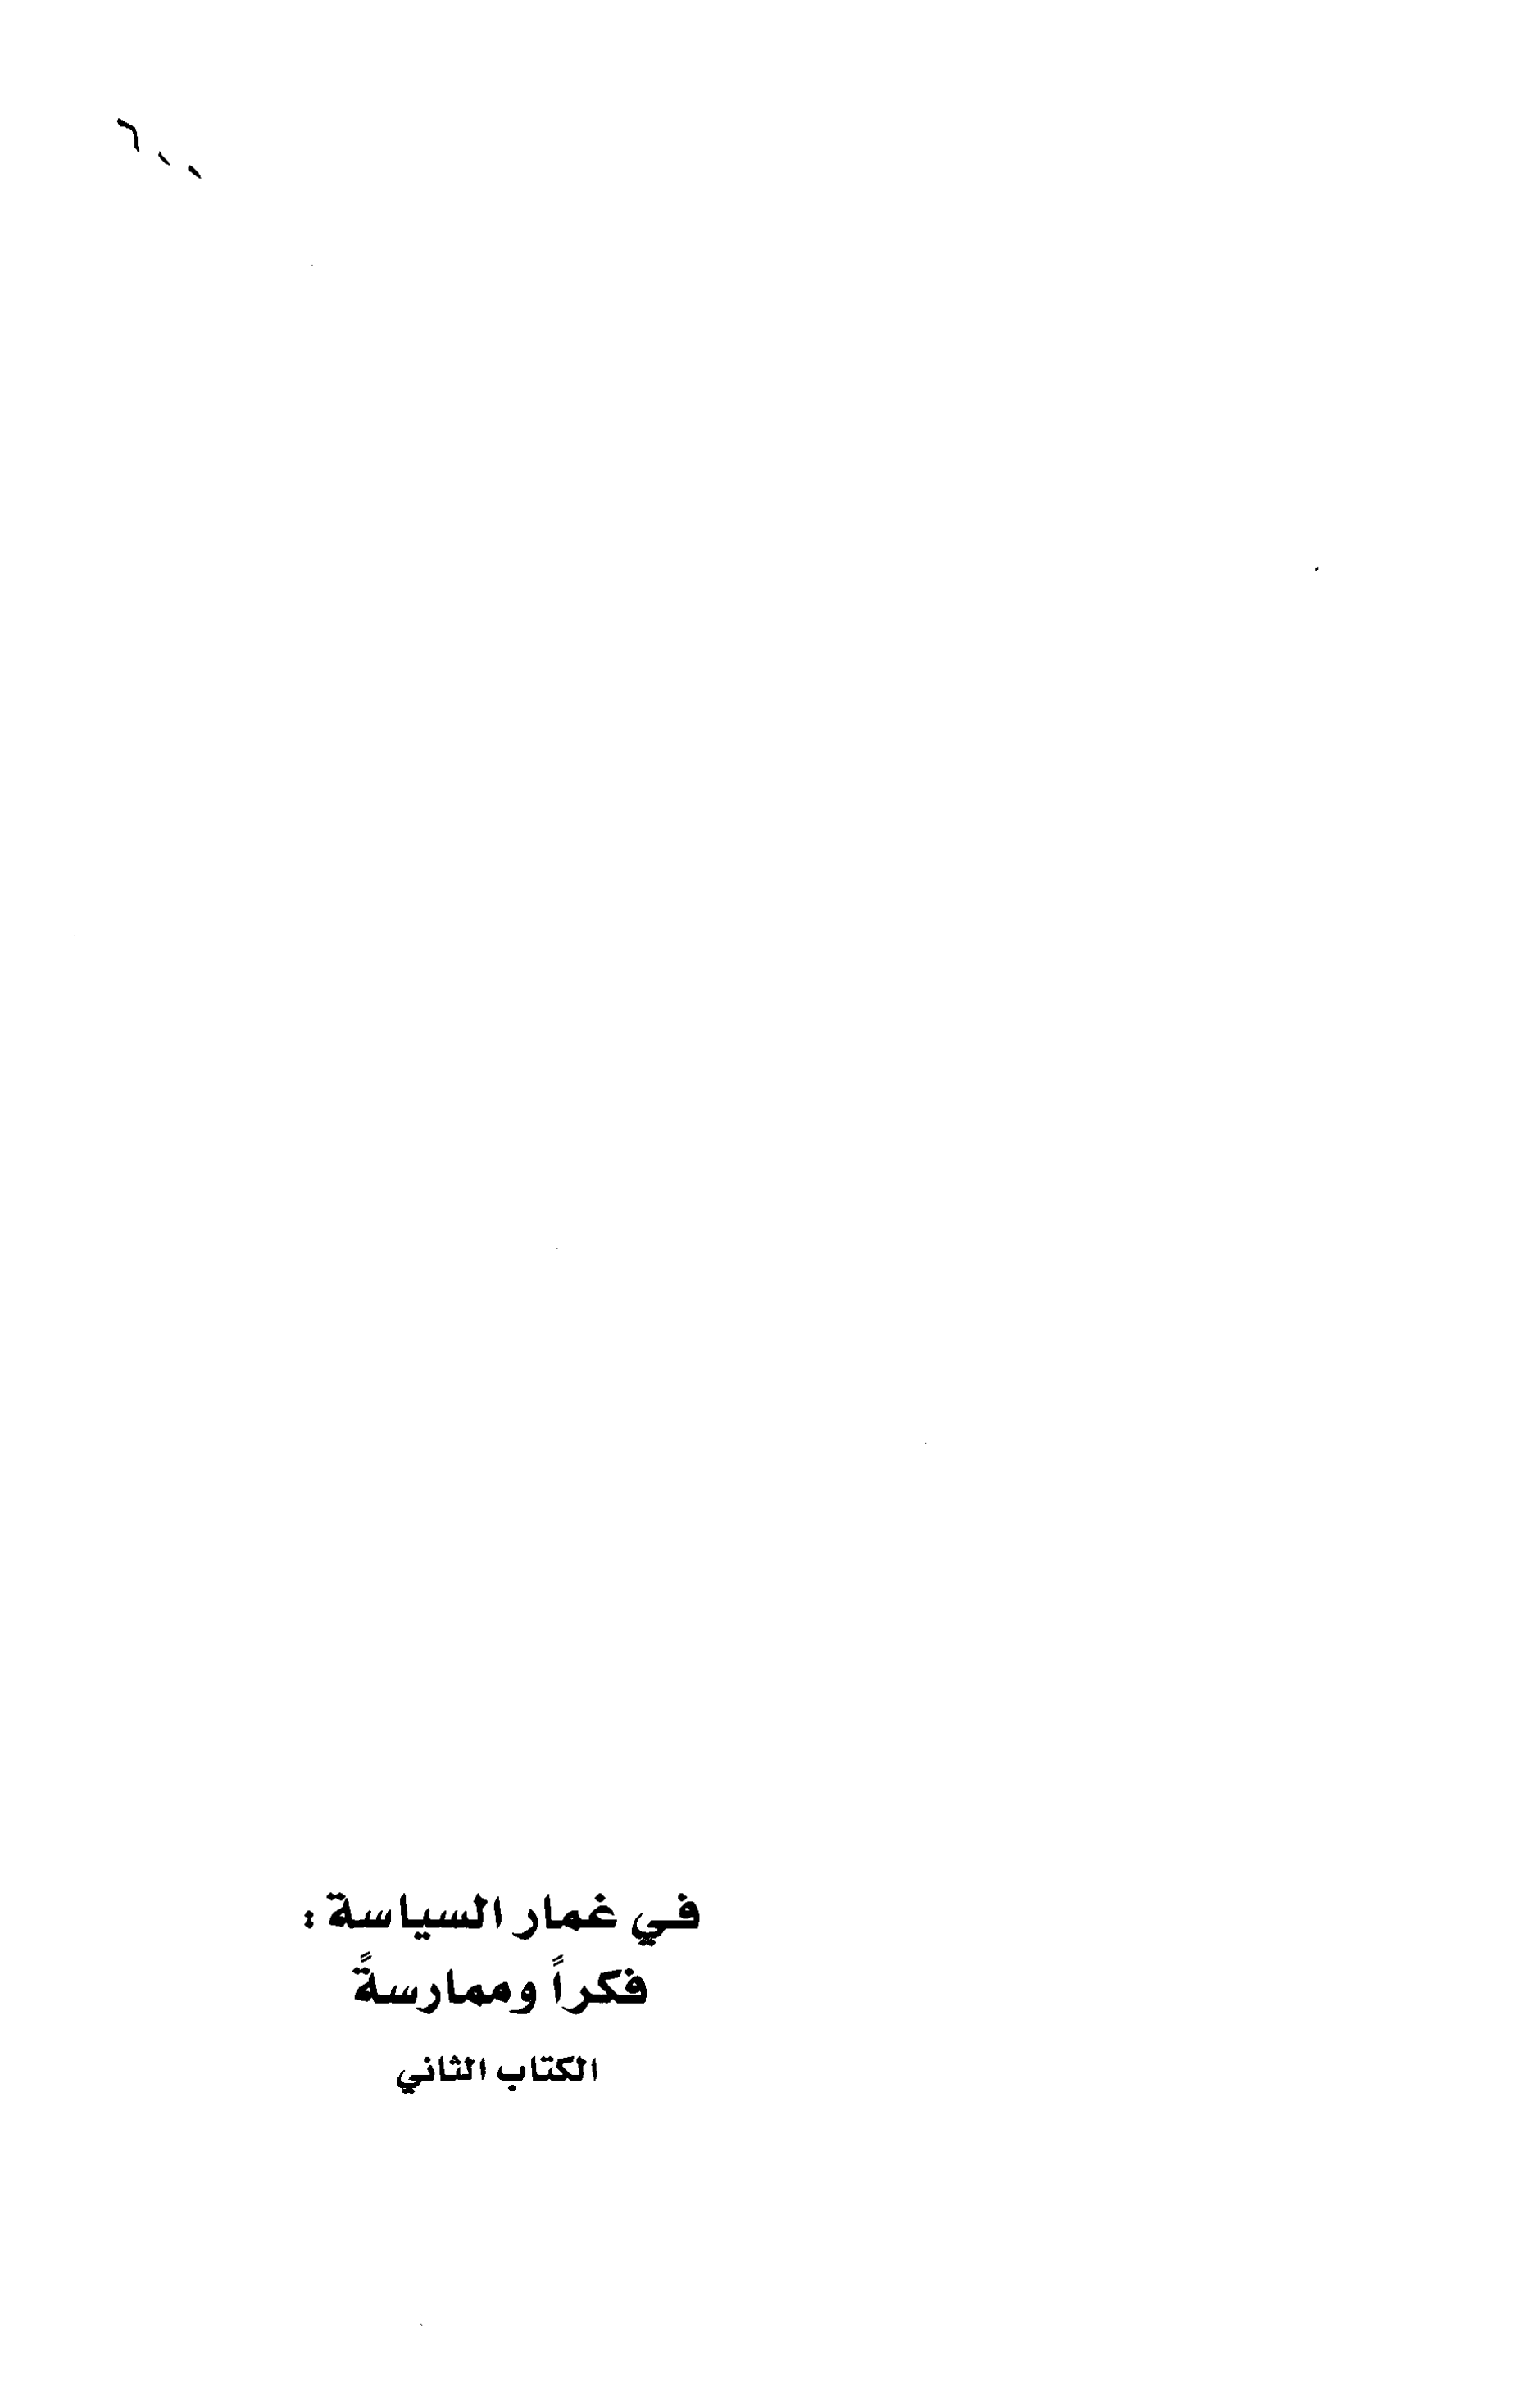 ٦٠٠
في غمار السياسة:
فكراً وممارسةً
الكتاب الثاني